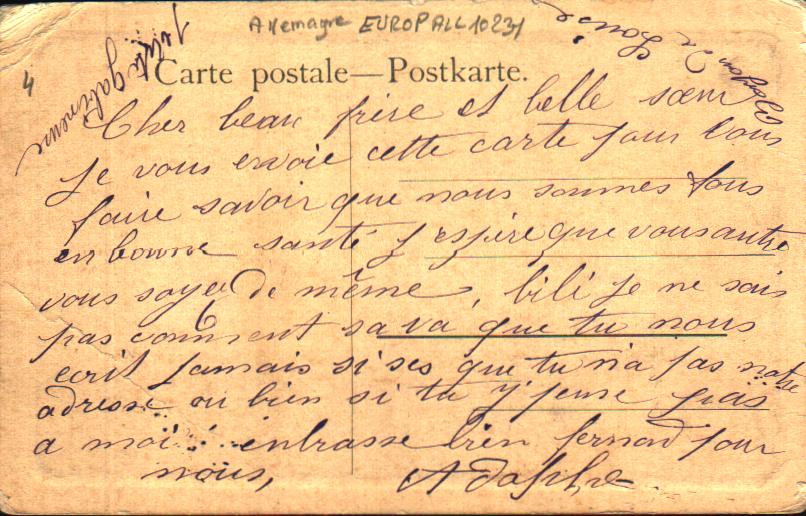 Allemagne EUROPALL1023
4
Carte postale—Postkarte.
Cher beau frère et belle sœur
Je vous envoie cette carte pour vous
faire savoir que nous sommes tous
en bonne santé j espère que vous autre
vous soyez de même, bili je ne sais
pas comment sa va que tu nous
ecrit jamais si ses que tu n'a pas notre
adresse ou bien si tu y pense pas
a moi. enbrasse bien fernand pour
nous,
Adolphe
Louise